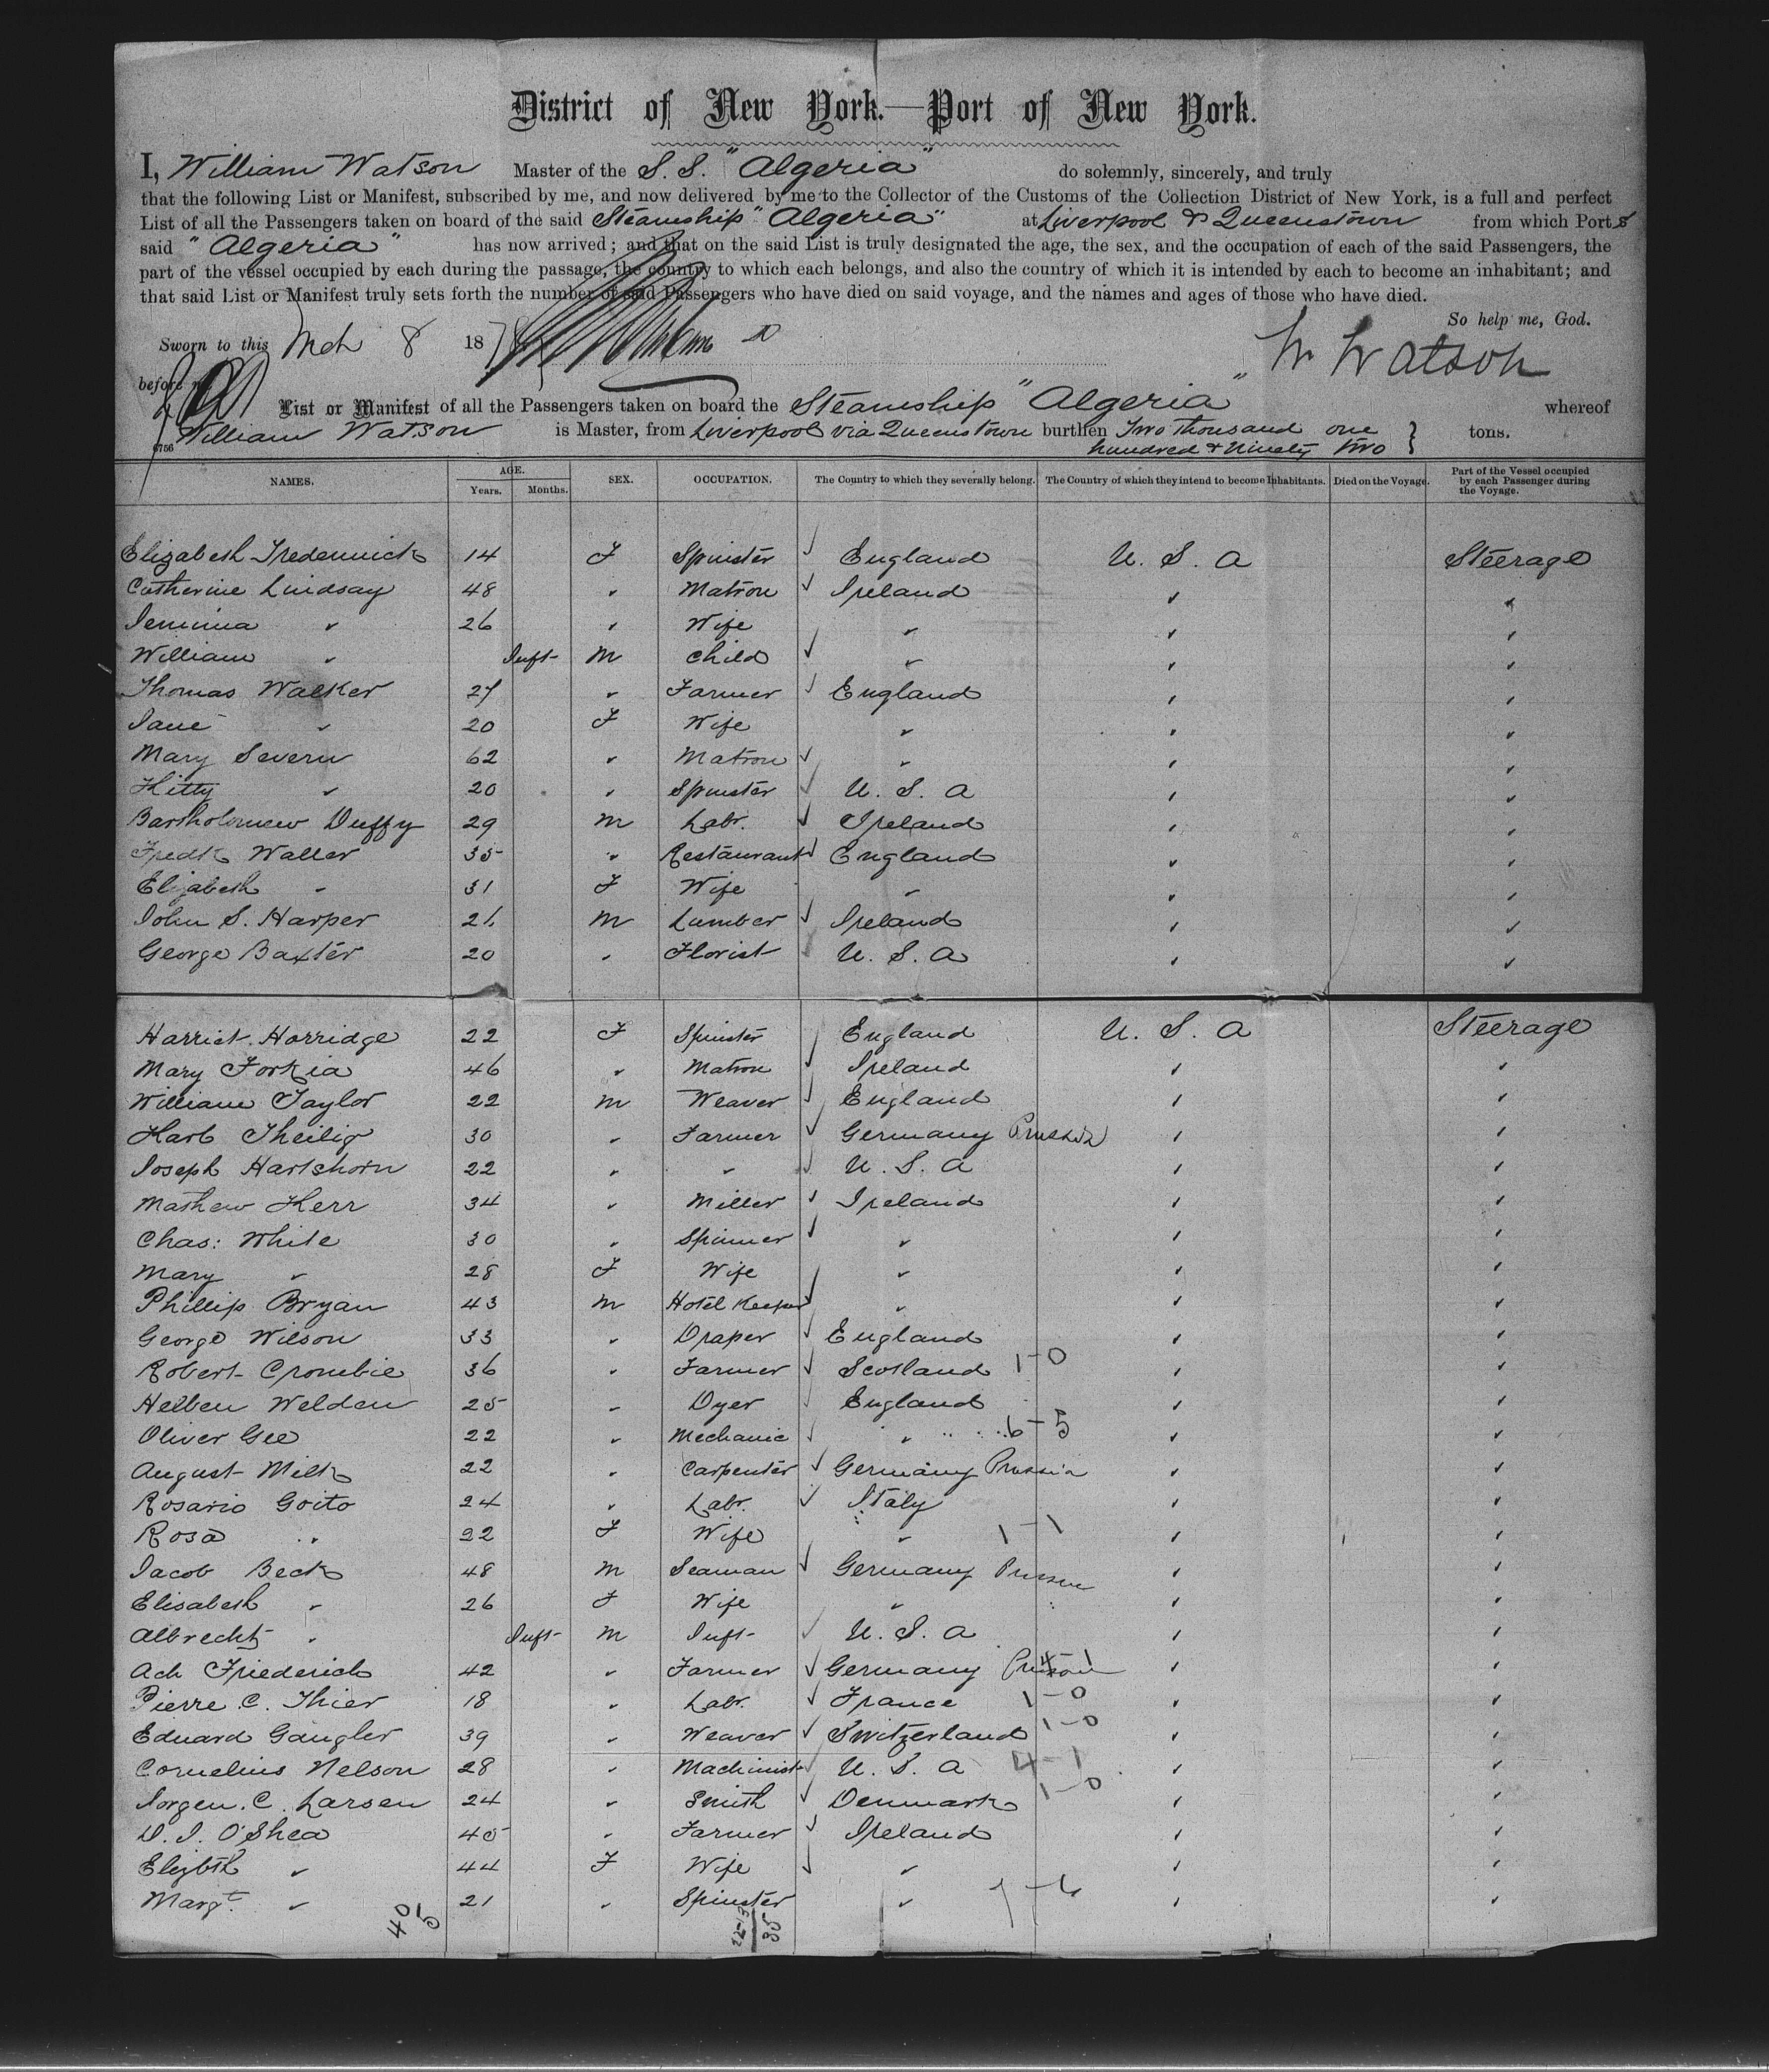 District of New York.—Port of New York.
I, William Watson Master of the S. S. "Algeria" do solemnly, sincerely, and truly
that the following List or Manifest, subscribed by me, and now delivered by me to the Collector of the Customs of the Collection District of New York, is a full and perfect
List of all the Passengers taken on board of the said Steamship "Algeria" at Liverpool & Queenstown from which Port s
said "Algeria" has now arrived; and that on the said List is truly designated the age, the sex, and the occupation of each of the said Passengers, the
part of the vessel occupied by each during the passage, the country to which each belongs, and also the country of which it is intended by each to become an inhabitant; and
that said List or Manifest truly sets forth the number of said Passengers who have died on said voyage, and the names and ages of those who have died.
So help me, God.
Sworn to this Mch 8 187 W Watson
before me
List or Manifest of all the Passengers taken on board the Steamship "Algeria" whereof
William Watson is Master, from Liverpool via Queenstown burthen Two thousand one
hundred & Ninety two } tons.
6756
NAMES. AGE. Years. Months. SEX. OCCUPATION. The Country to which they severally belong. The Country of which they intend to become Inhabitants. Died on the Voyage. Part of the Vessel occupied by each Passenger during the Voyage.
Elizabeth Tredennick 14 F Spinster England U. S. A Steerage
Catherine Lindsay 48 " Matron Ireland " "
Jemima " 26 " Wife " " "
William " Inft M Child " " "
Thomas Walker 27 " Farmer England " "
Jane " 20 F Wife " " "
Mary Severn 62 " Matron " " "
Kitty " 20 " Spinster U. S. A " "
Bartholomew Duffy 29 M Labr. Ireland " "
Fredk Waller 35 " Restaurant England " "
Elizabeth " 31 F Wife " " "
John S. Harper 21 M Lumber Ireland " "
George Baxter 20 " Florist U. S. A " "
Harriet Horridge 22 F Spinster England U. S. A Steerage
Mary Forkia 46 " Matron Ireland " "
William Taylor 22 M Weaver England " "
Karl Theilig 30 " Farmer Germany Prussia " "
Joseph Hartshorn 22 " " U. S. A " "
Mathew Kerr 34 " Miller Ireland " "
Chas: White 30 " Spinner " " "
Mary " 28 F Wife " " "
Phillip Bryan 43 M Hotel Keeper " " "
George Wilson 33 " Draper England " "
Robert Crombie 36 " Farmer Scotland 1-0 " "
Welden 25 " Dyer England " "
Oliver Gee 22 " Mechanic " 6-5 " "
August Milk 22 " Carpenter Germany Prussia " "
Rosario Goito 24 " Labr. Italy " "
Rosa " 22 F Wife " 1-1 " "
Jacob Beck 48 M Seaman Germany Prussia " "
Elisabeth " 26 F Wife " " "
Albrecht " Inft M Inft U. S. A " "
Ach Friederich 42 " Farmer Germany 4 1 " "
Pierre C. Thier 18 " Labr. France 1-0 " "
Eduard Gangler 39 " Weaver Switzerland 1-0 " "
Cornelius Nelson 28 " Machinist U. S. A 4-1 " "
Jorgen. C. Larsen 24 " Smith Denmark 1-0 " "
D. J. O'Shea 45 " Farmer Ireland " "
Elizbth " 44 F Wife " " "
Margt. " 21 " Spinster " 7-6 " "
40
5
22-13
35